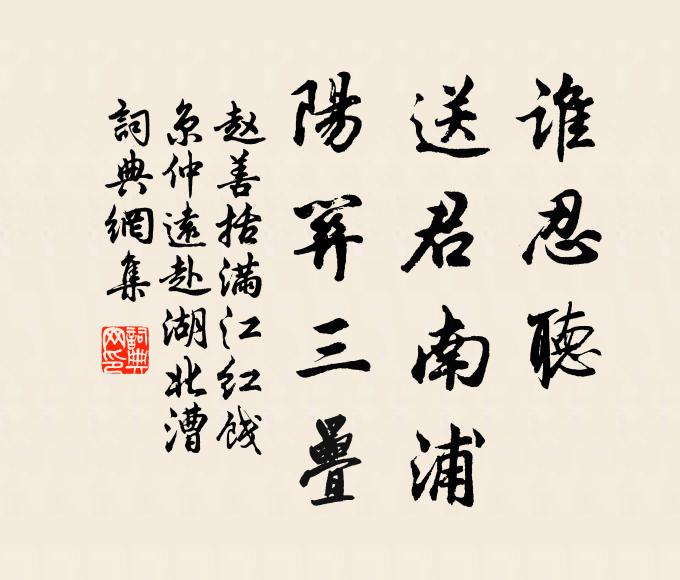 誰忍聽
送君南浦
陽關三疊
赵善括满江红饯
京仲遠赴湖北漕
詞典網集
詞典網印